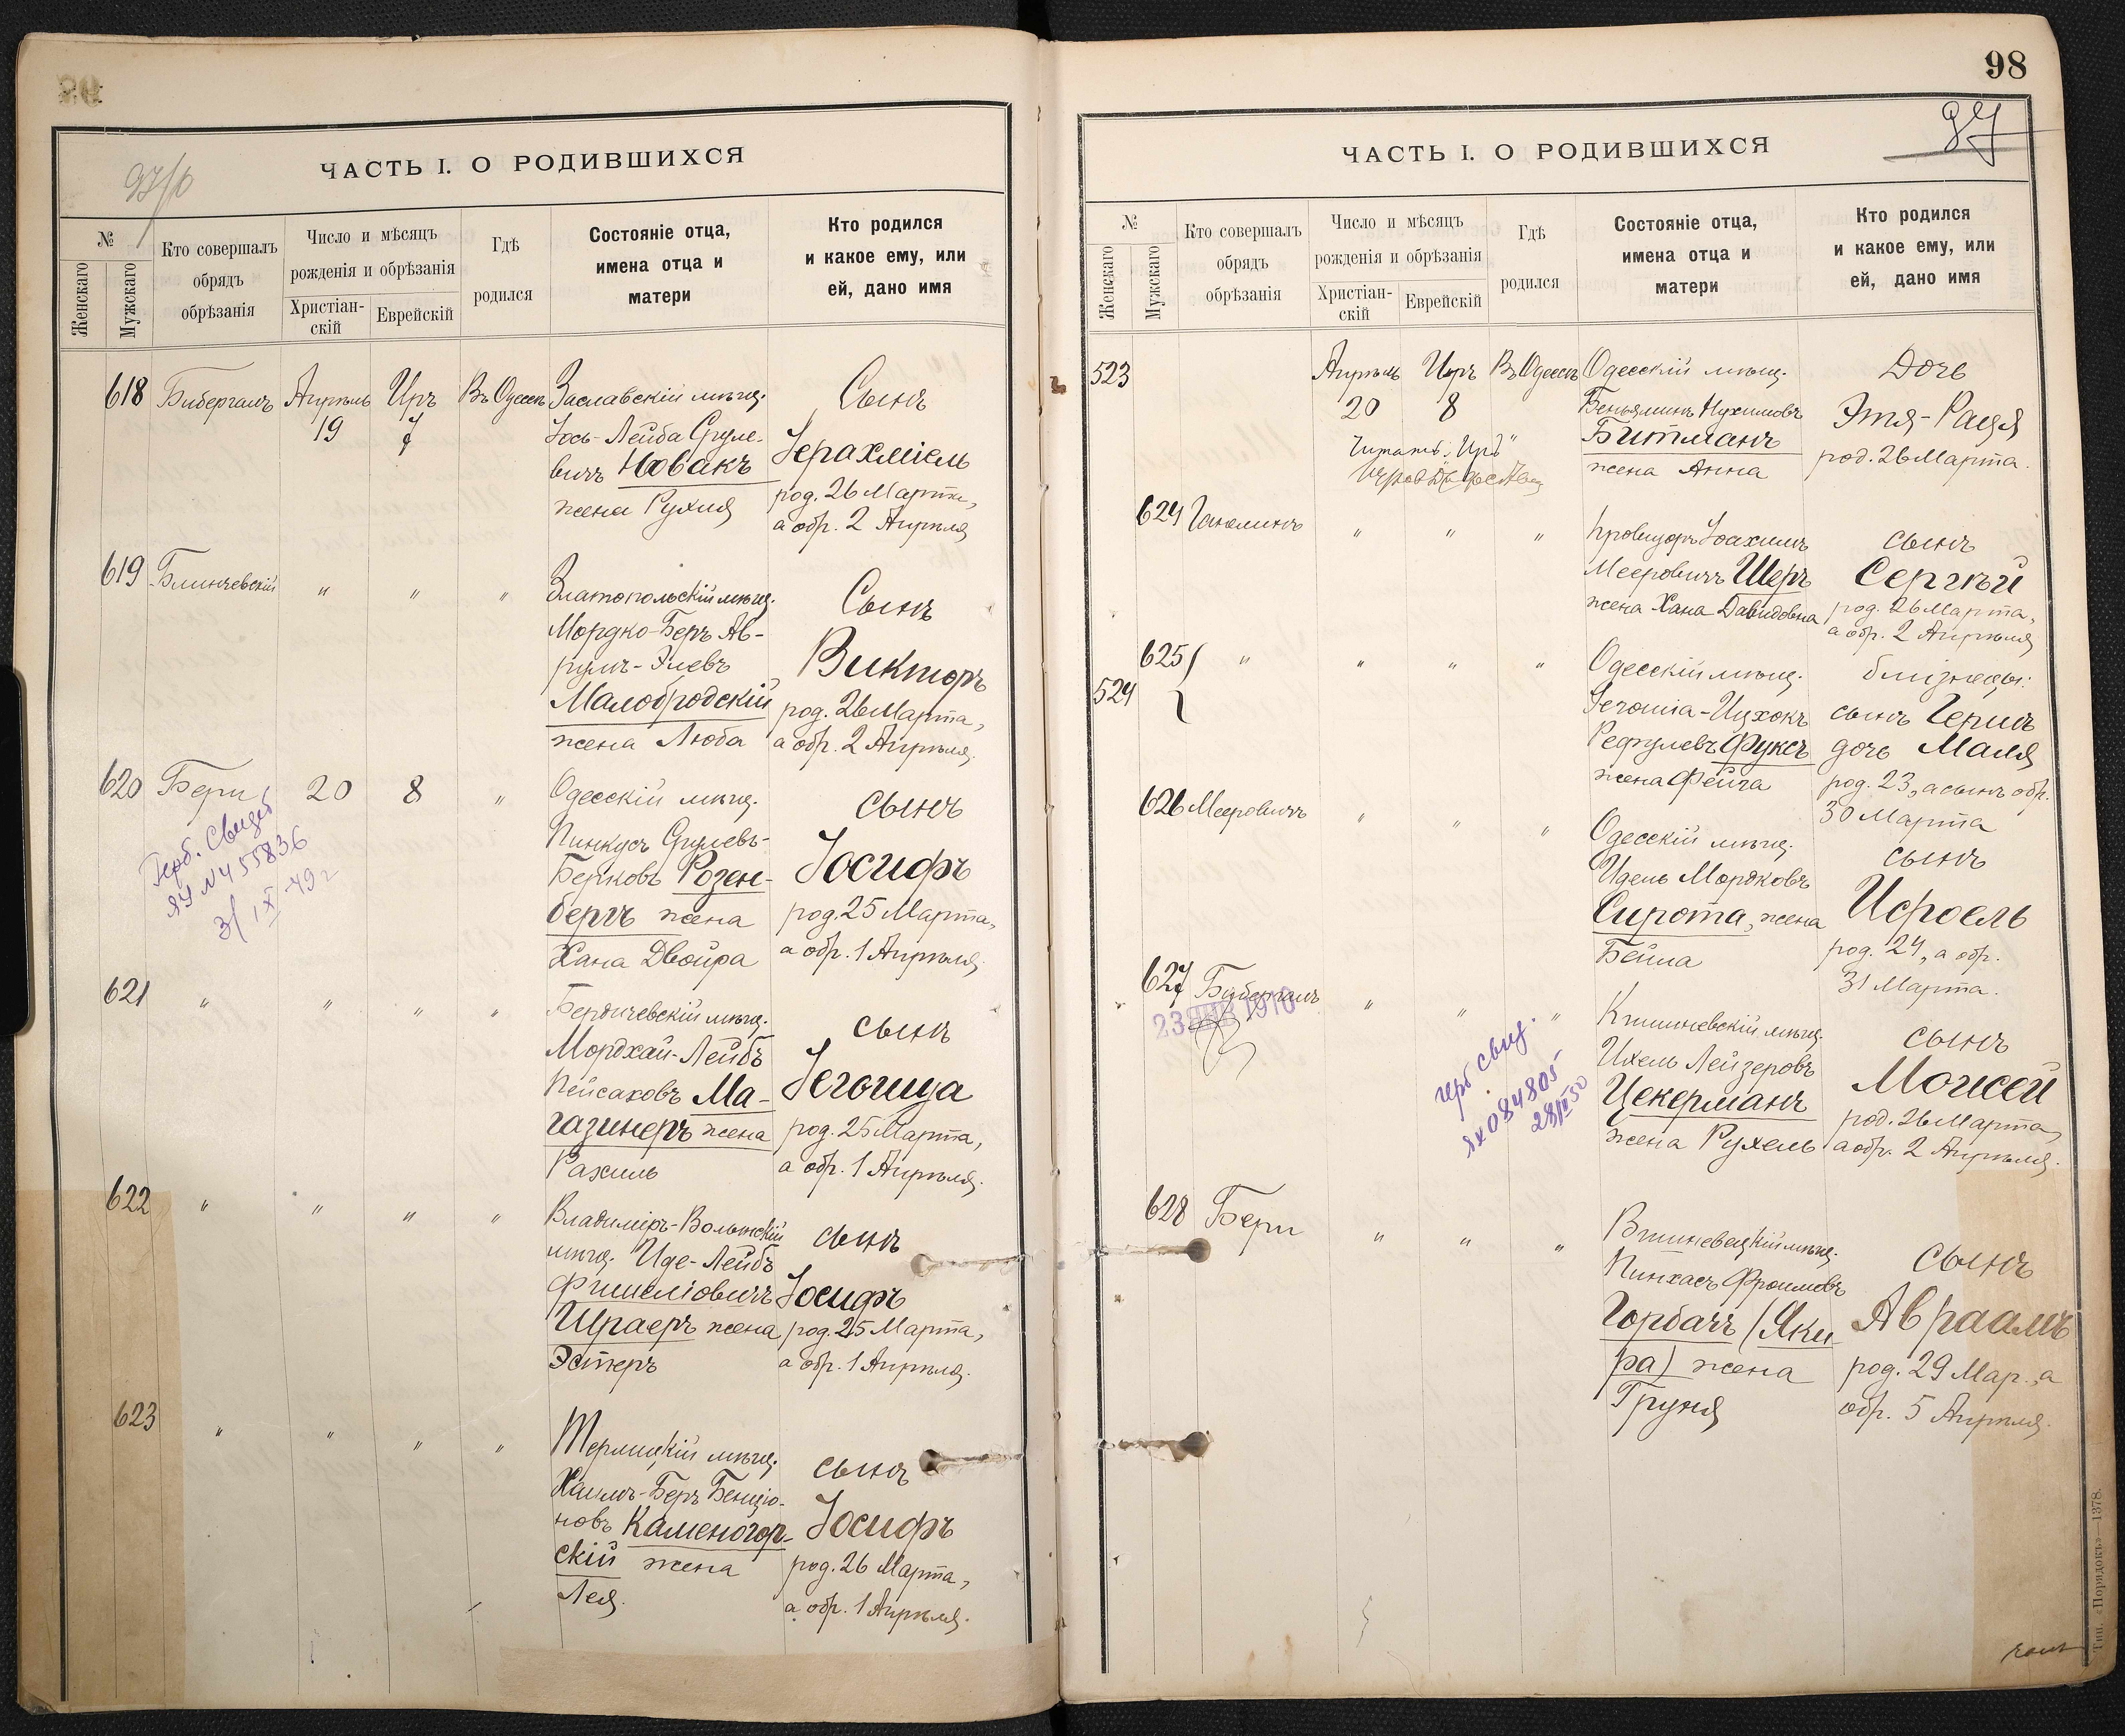 ЧАСТЬ I. О РОДИВШИХСЯ
№
Женскаго
Мужскаго
Кто совершалъ
обрядъ
обрѣзанія
Число и мѣсяцъ
рожденія и обрѣзанія
Христіан-
скій
Еврейскій
Гдѣ
родился
Состояніе отца,
имена отца и
матери
Кто родился
и какое ему, или
ей, дано имя
618 Бибергалъ Апрѣль Иръ Въ Одессѣ Заславскій мѣщ. Сынъ
19 7
Іось-Лейба Сруле-
вичъ Новакъ Іерахміель
жена Рухля род. 26 Марта,
а обр. 2 Апрѣля
619 Блинчевскій " " " Златопольскій мѣщ. Сынъ
Мордко-Беръ Ав-
румъ-Элевъ Викторъ
Малобродскій род. 26 Марта,
жена Люба а обр. 2 Апрѣля.
620 Бери 20 8 " Одесскій мѣщ. сынъ
Пинкусъ Срулевъ-
Берковъ Розен- Іосифъ
бергъ жена род. 25 Марта,
Хана Двойра а обр. 1 Апрѣля.
Герб. Свидет
ЯУ №455836
3/IX-49г
621 " " " " Бердичевскій мѣщ. сынъ
Мордхай-Лейбъ
Пейсаховъ Ма- Іегошуа
газинеръ жена род. 25 Марта,
Рахиль а обр. 1 Апрѣля.
622 " " " " Владиміръ-Волынскій сынъ
мѣщ. Иде-Лейбъ
Фишеліовичъ Іосифъ
Шраеръ жена род. 25 Марта,
Эстеръ а обр. 1 Апрѣля.
623 " " " " мѣщ. сынъ
Хаимъ-Беръ Бенціо-
новъ Каменогор- Іосифъ
скій жена род. 26 Марта,
Лея. а обр. 1 Апрѣля.
98
97
ЧАСТЬ I. О РОДИВШИХСЯ
№
Женскаго
Мужскаго
Кто совершалъ
обрядъ
обрѣзанія
Число и мѣсяцъ
рожденія и обрѣзанія
Христіан-
скій
Еврейскій
Гдѣ
родился
Состояніе отца,
имена отца и
матери
Кто родился
и какое ему, или
ей, дано имя
523 Апрѣль Иръ Въ Одессѣ Одесскій мѣщ. Дочь
20 8 Беньяминъ Нухимовъ Этя-Рація
Читать: "Иръ" Битманъ род. 26 Марта.
жена Анна
624 " " " Провизоръ Іоахимъ сынъ
Мееровичъ Шеръ Сергѣй
жена Хана Давидовна род. 26 Марта,
а обр. 2 Апрѣля
625 " " " " Одесскій мѣщ. близнецы:
524 -Ицхокъ сынъ Гершъ
Рефулевъ Фуксъ дочь Маля
жена Фейга род. 23, а сынъ обр.
30 Марта
626 Мееровичъ " " " Одесскій мѣщ. сынъ
Идель Мордковъ
Сирота, жена Исроель
Бейла род. 24, а обр.
31 Марта.
627 Бибергалъ " " " Кишиневскій мѣщ. сынъ
23 ЯНВ 1910
Ихель Лейзеровъ
Цекерманъ Моисей
род. 26 Марта,
жена Рухель а обр. 2 Апрѣля.
герб свид.
ЯХ 084805
28/II 50
628 Бери " " " Вишневецкій мѣщ. сынъ
Пинхасъ Фроимовъ
Горбачъ (Яки- Авраамъ
ра) жена род. 29 Мар., а
Груня обр. 5 Апрѣля.
Тип. «Порядокъ»—1378.